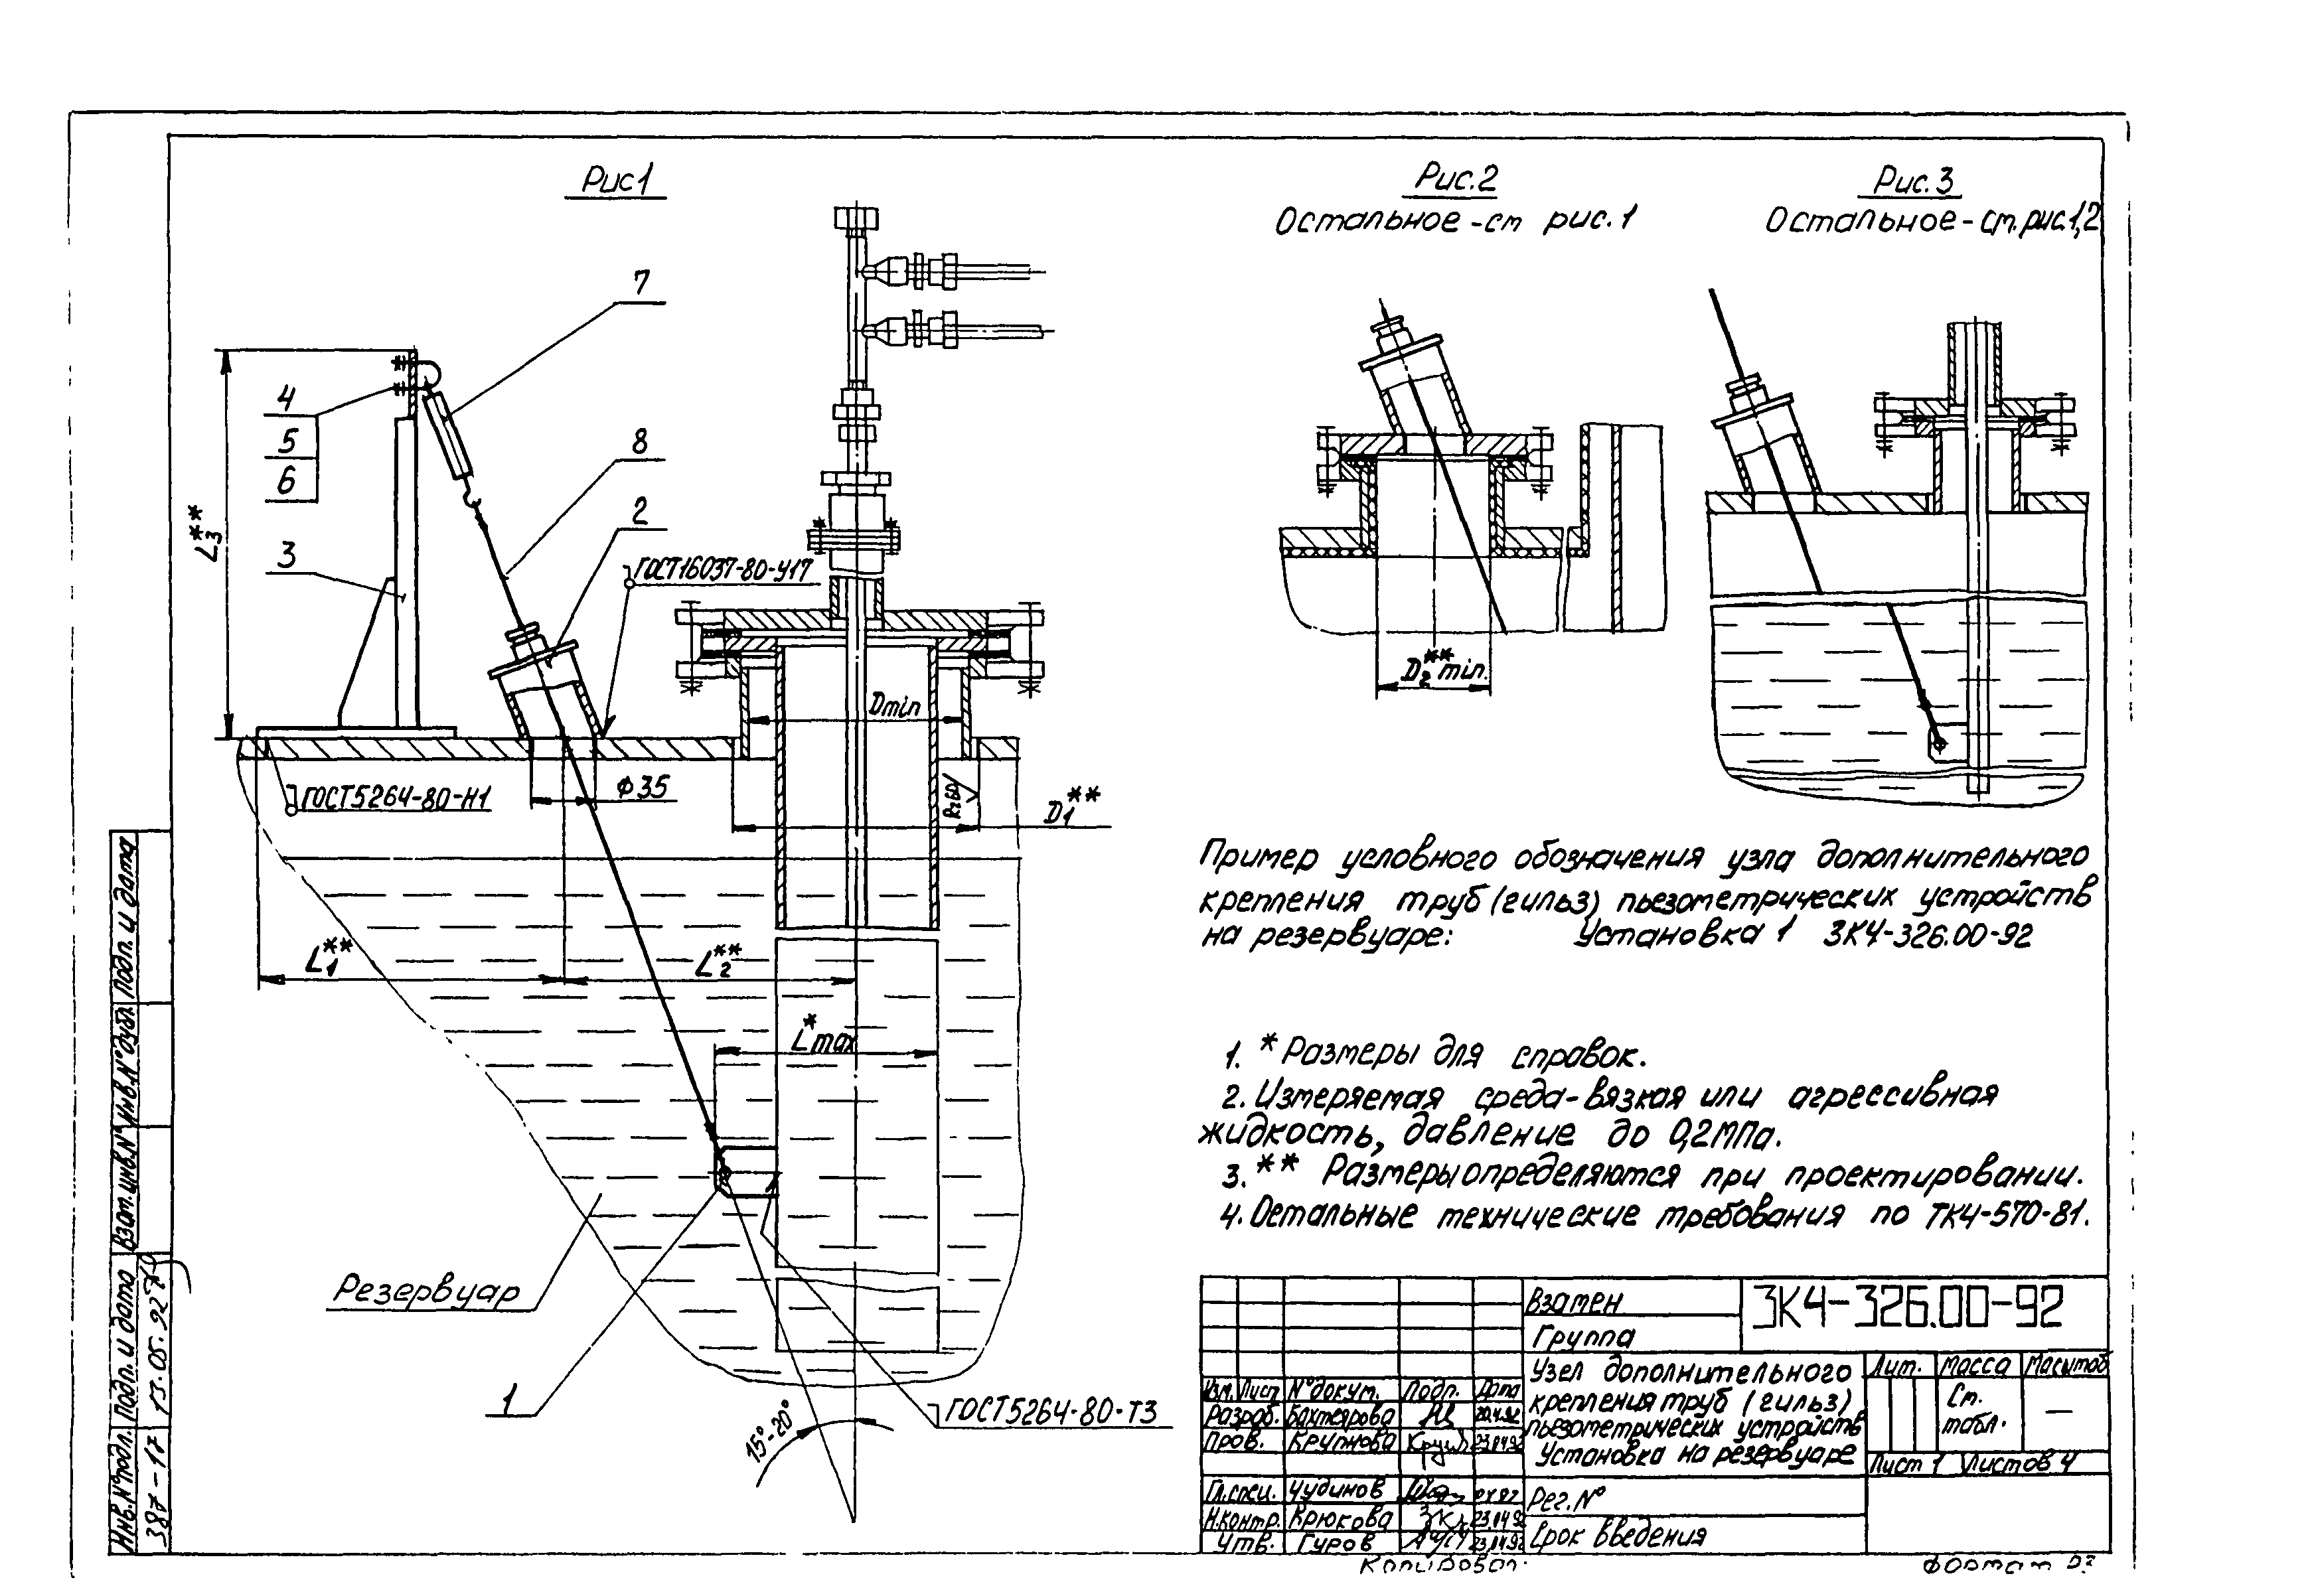 Рис1
Рис.2
Остальное -см рис. 1
Рис. 3
Остальное - см. рис.1,2
7
4
5
6
8
2
3
L3**
ГОСТ16037-80-У17
ГОСТ5264-80-Н1
Ф35
Dmin
Rz60
D1**
D2** min.
L1**
L2**
L* max
Резервуар
1
ГОСТ5264-80-Т3
15°-20°
Пример условного обозначения узла дополнительного
крепления труб (гильз) пьезометрических устройств
на резервуаре: Установка 1 ЗК4-326.00-92
1. * Размеры для справок.
2. Измеряемая среда-вязкая или агрессивная
жидкость, давление до 0,2МПа.
3. ** Размеры определяются при проектировании.
4. Остальные технические требования по ТК4-570-81.
Взамен
ЗК4-326.00-92
Группа
Узел дополнительного
крепления труб (гильз)
пьезометрических устройств
Установка на резервуаре
Лит. Масса Масштаб
См.
табл.
—
Лист 1 Листов 4
Изм. Лист N°докум. Подп. Дата
Разраб. Бахтеярова 20.4.92
Пров. Крупнова 23.04.92
Гл.спец. Чудинов
Н.контр. Крюкова 23.04.92
Утв. Гуров 23.04.92
Рег.N°
Срок введения
Копировал:
Формат
Инв.N°подл. Подп. и дата Взам.инв.N° Инв.N°дубл. Подп. и дата
387-17 13.05.92